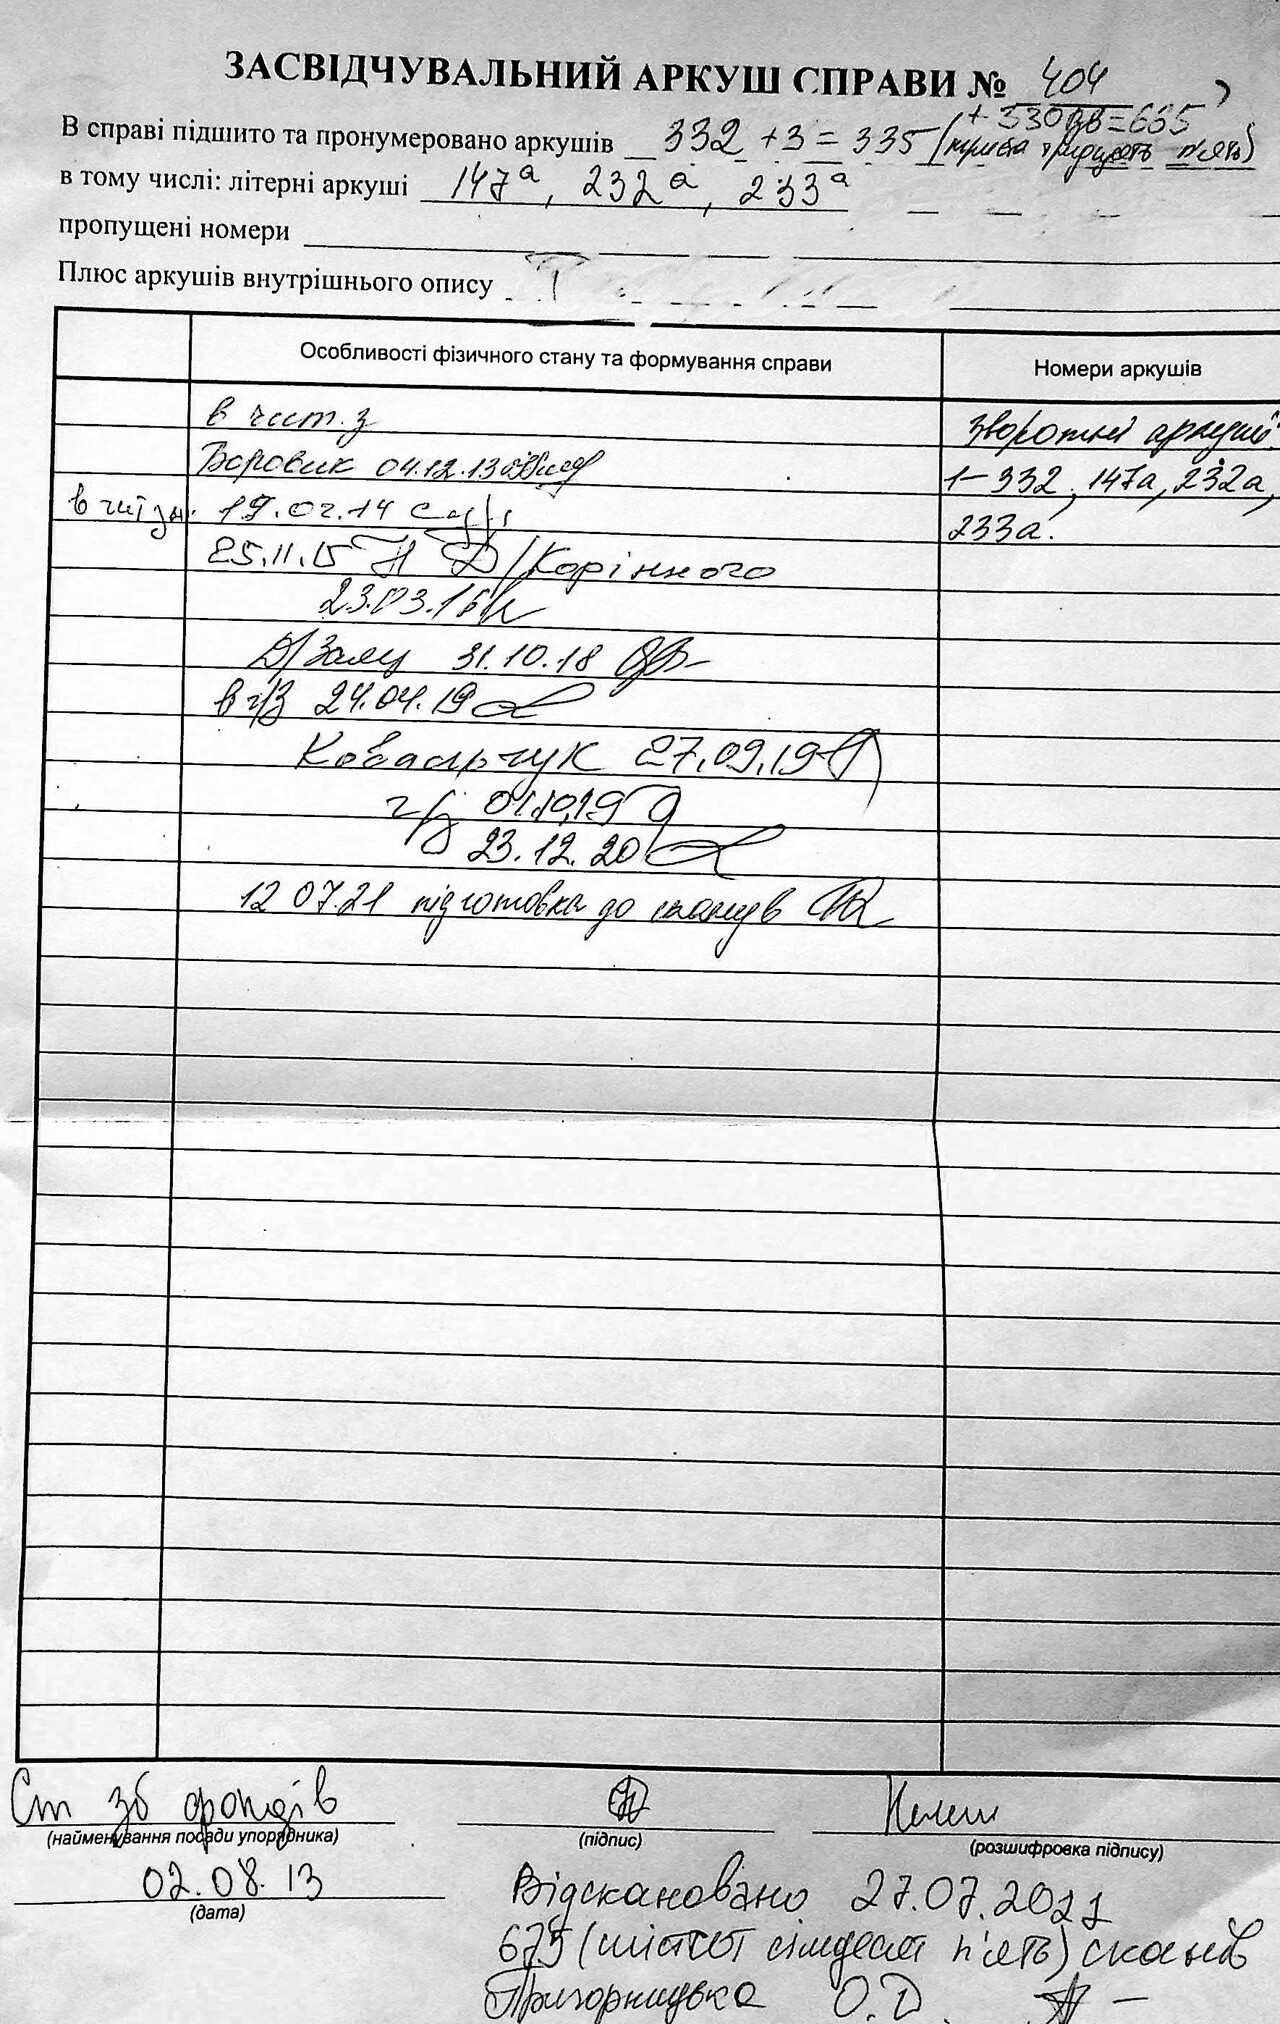 ЗАСВІДЧУВАЛЬНИЙ АРКУШ СПРАВИ № 404
+ 330зв=665
В справі підшито та пронумеровано аркушів 332 +3 = 335 (триста тридцять п'ять)
в тому числі: літерні аркуші 147а, 232а, 233а
пропущені номери
Плюс аркушів внутрішнього опису
Особливості фізичного стану та формування справи Номери аркушів
в чит.з Зворотні аркуші:
Боровик 04.12.13 1-332, 147а, 232а,
19.02.14 233а.
25.11.15 Д/Корінного
23.03.16
Д/Залу 31.10.18
в ч/з 24.04.19
Ковальчук 27.09.19
ч/з 01.10.19
23.12.20
12 07.21 підготовка до сканув
Ст зб фондів
(найменування посади упорядника) (підпис) (розшифровка підпису)
02.08.13
(дата)
Відскановано 27.07.2021
675 (шістсот сімдесят п'ять) сканів
О.Д.